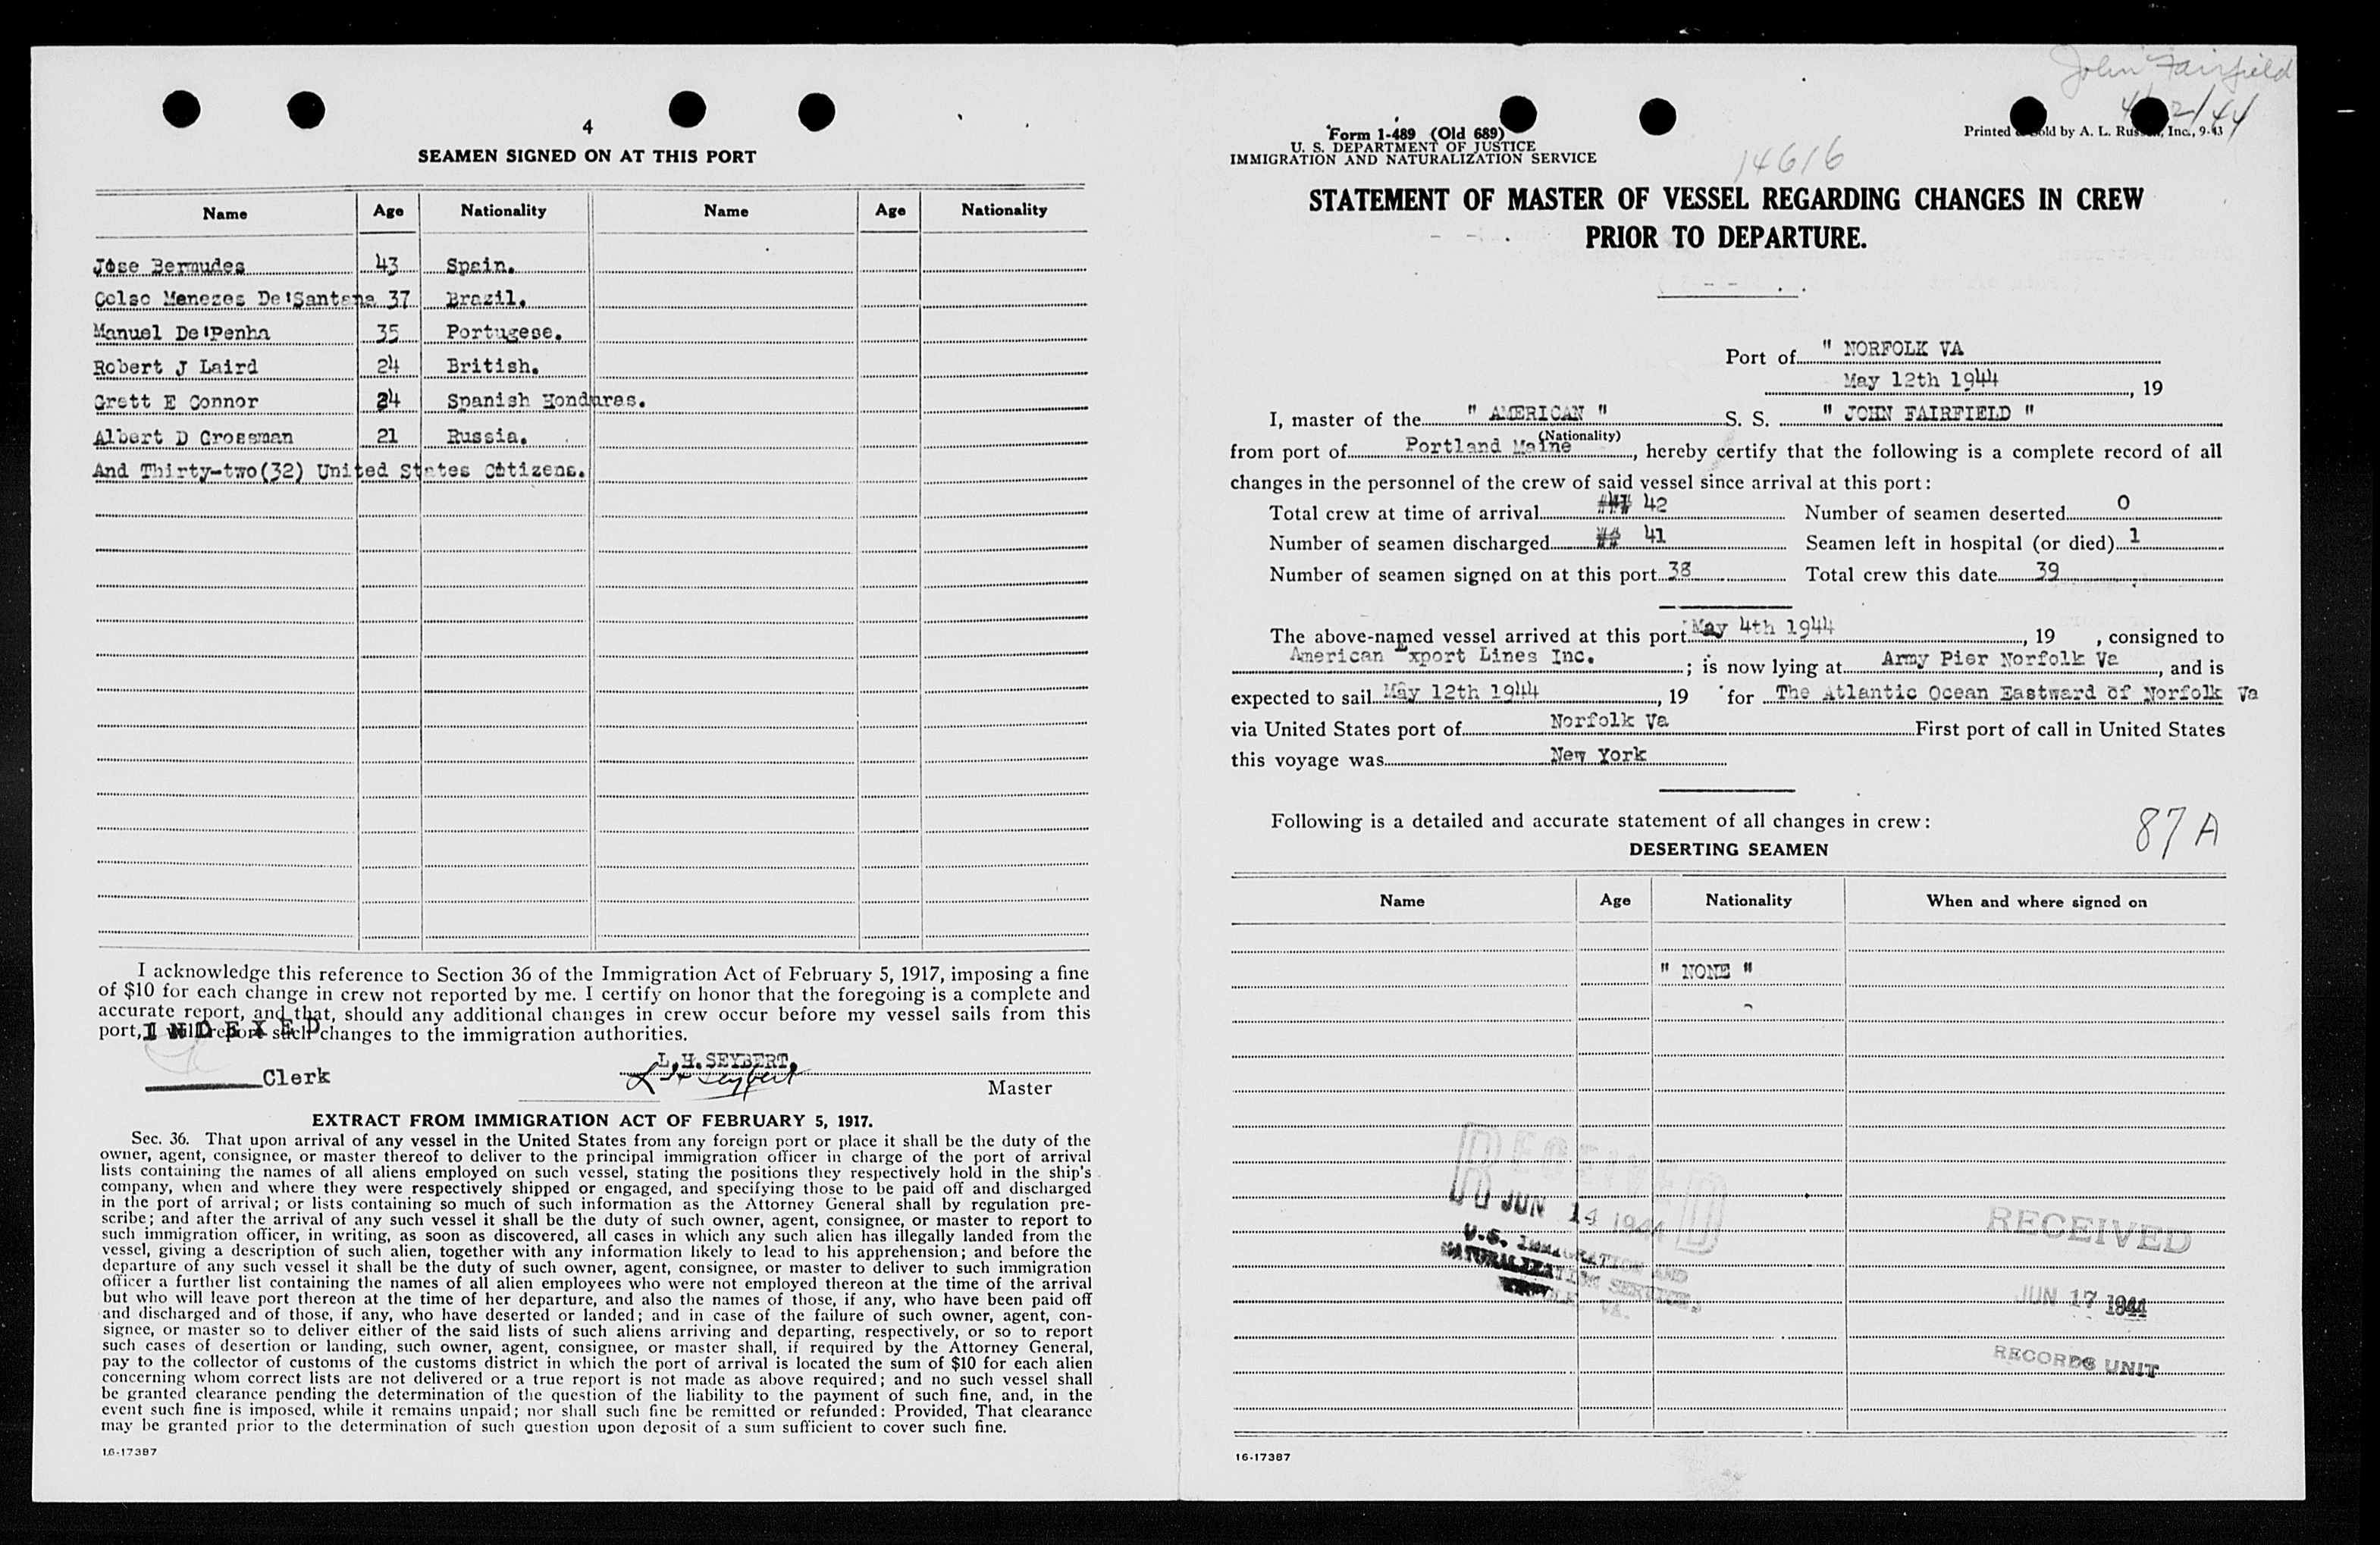 4
SEAMEN SIGNED ON AT THIS PORT
Name Age Nationality Name Age Nationality
Jose Bermudes 43 Spain.
Celso Menezes De'Santana 37 Brazil.
Manuel De'Penha 35 Portugese.
Robert J Laird 24 British.
Grett E Connor 24 Spanish Honduras.
Albert D Grossman 21 Russia.
And Thirty-two(32) United States Citizens.
I acknowledge this reference to Section 36 of the Immigration Act of February 5, 1917, imposing a fine
of $10 for each change in crew not reported by me. I certify on honor that the foregoing is a complete and
accurate report, and that, should any additional changes in crew occur before my vessel sails from this
port, I will report such changes to the immigration authorities.
INDEXED
Clerk
L.H. SEYBERT,
L H Seybert
Master
EXTRACT FROM IMMIGRATION ACT OF FEBRUARY 5, 1917.
Sec. 36. That upon arrival of any vessel in the United States from any foreign port or place it shall be the duty of the
owner, agent, consignee, or master thereof to deliver to the principal immigration officer in charge of the port of arrival
lists containing the names of all aliens employed on such vessel, stating the positions they respectively hold in the ship's
company, when and where they were respectively shipped or engaged, and specifying those to be paid off and discharged
in the port of arrival; or lists containing so much of such information as the Attorney General shall by regulation pre-
scribe; and after the arrival of any such vessel it shall be the duty of such owner, agent, consignee, or master to report to
such immigration officer, in writing, as soon as discovered, all cases in which any such alien has illegally landed from the
vessel, giving a description of such alien, together with any information likely to lead to his apprehension; and before the
departure of any such vessel it shall be the duty of such owner, agent, consignee, or master to deliver to such immigration
officer a further list containing the names of all alien employees who were not employed thereon at the time of the arrival
but who will leave port thereon at the time of her departure, and also the names of those, if any, who have been paid off
and discharged and of those, if any, who have deserted or landed; and in case of the failure of such owner, agent, con-
signee, or master so to deliver either of the said lists of such aliens arriving and departing, respectively, or so to report
such cases of desertion or landing, such owner, agent, consignee, or master shall, if required by the Attorney General,
pay to the collector of customs of the customs district in which the port of arrival is located the sum of $10 for each alien
concerning whom correct lists are not delivered or a true report is not made as above required; and no such vessel shall
be granted clearance pending the determination of the question of the liability to the payment of such fine, and, in the
event such fine is imposed, while it remains unpaid; nor shall such fine be remitted or refunded: Provided, That clearance
may be granted prior to the determination of such question upon deposit of a sum sufficient to cover such fine.
16-17387
John Fairfield
Form 1-489 (Old 689)
U. S. DEPARTMENT OF JUSTICE
IMMIGRATION AND NATURALIZATION SERVICE
Printed & Sold by A. L. Russell, Inc., 9-43
14616
STATEMENT OF MASTER OF VESSEL REGARDING CHANGES IN CREW
PRIOR TO DEPARTURE.
Port of " NORFOLK VA
May 12th 1944, 19
I, master of the " AMERICAN " S. S. " JOHN FAIRFIELD "
(Nationality)
from port of Portland Maine, hereby certify that the following is a complete record of all
changes in the personnel of the crew of said vessel since arrival at this port:
Total crew at time of arrival 42 Number of seamen deserted 0
Number of seamen discharged 41 Seamen left in hospital (or died) 1
Number of seamen signed on at this port 38 Total crew this date 39
The above-named vessel arrived at this port May 4th 1944, 19 , consigned to
American Export Lines Inc. ; is now lying at Army Pier Norfolk Va, and is
expected to sail May 12th 1944, 19 for The Atlantic Ocean Eastward of Norfolk Va
via United States port of Norfolk Va First port of call in United States
this voyage was New York
Following is a detailed and accurate statement of all changes in crew:
87 A
DESERTING SEAMEN
Name Age Nationality When and where signed on
" NONE "
RECEIVED
JUN 14 1944
U.S. IMMIGRATION AND
NATURALIZATION SERVICE,
VA.
RECEIVED
JUN 17 1944
RECORDS UNIT
16-17387